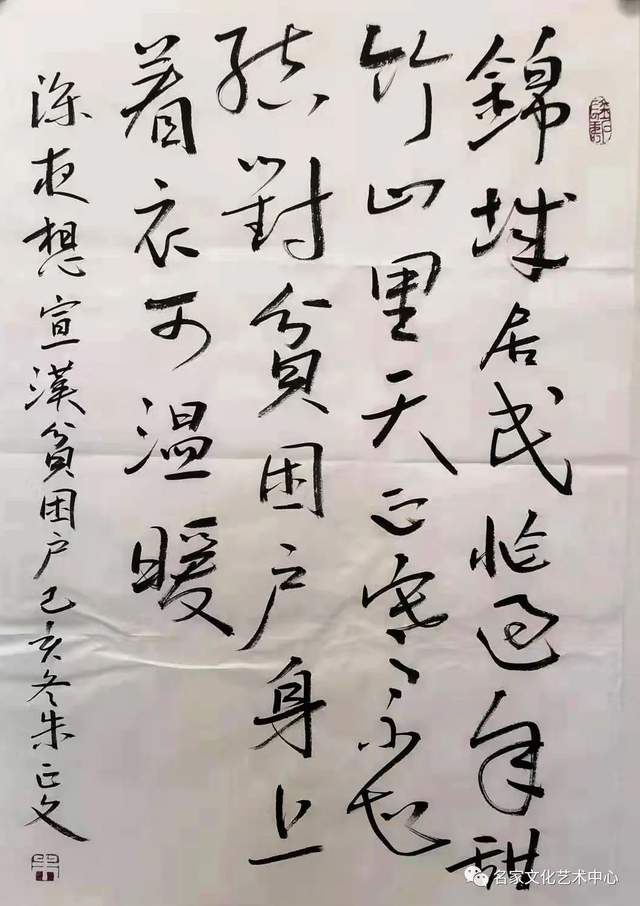 錦城居民恰過年甜
竹山里天正寒
對貧困户身上
着衣可温暖
深夜想宣漢貧困户己亥冬朱正文
名家文化艺术中心